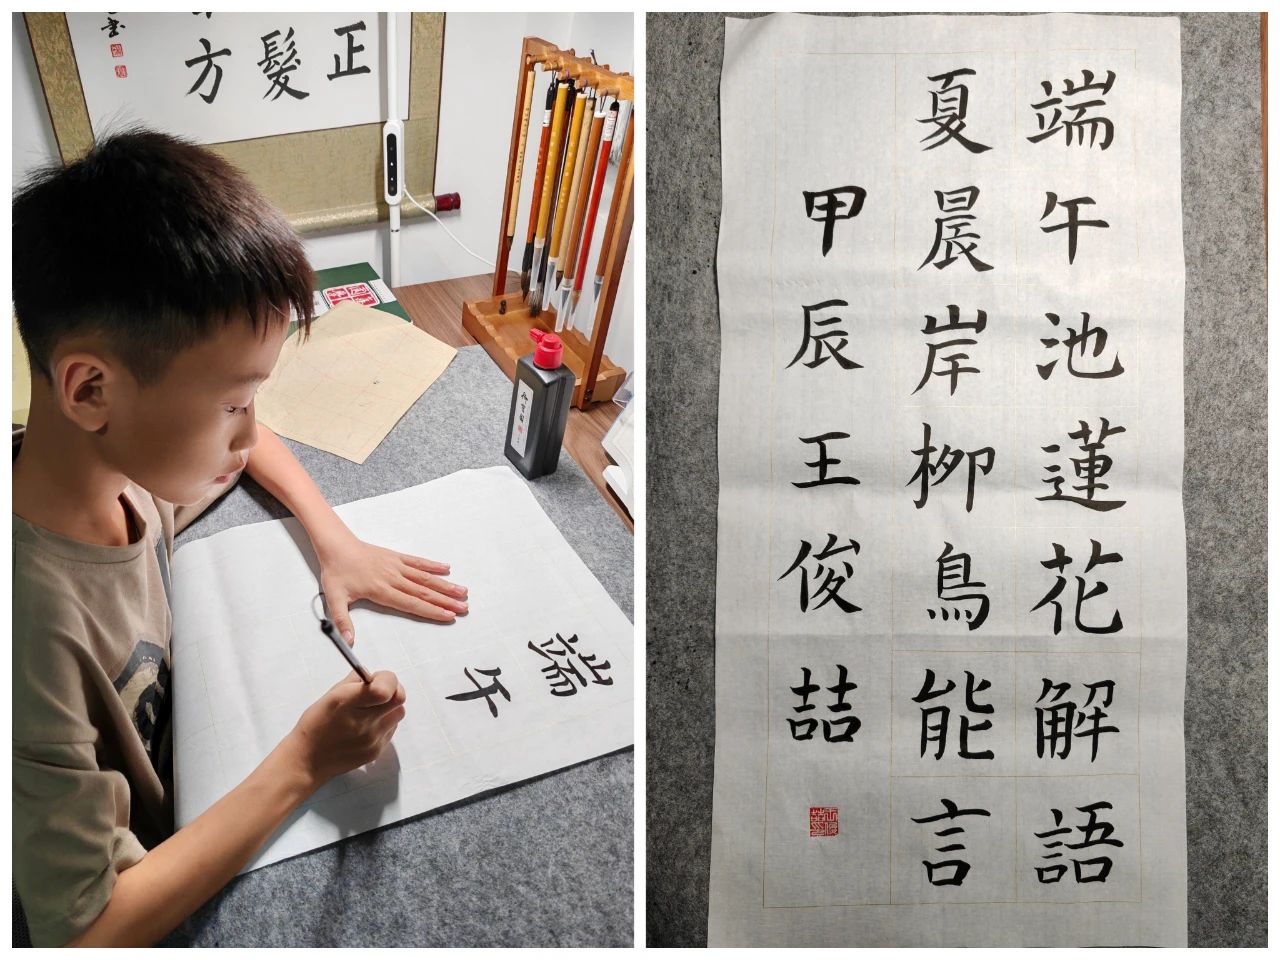 正
髮
方
書
端
午
端午池蓮花解語
夏晨岸柳鳥能言
甲辰王俊喆